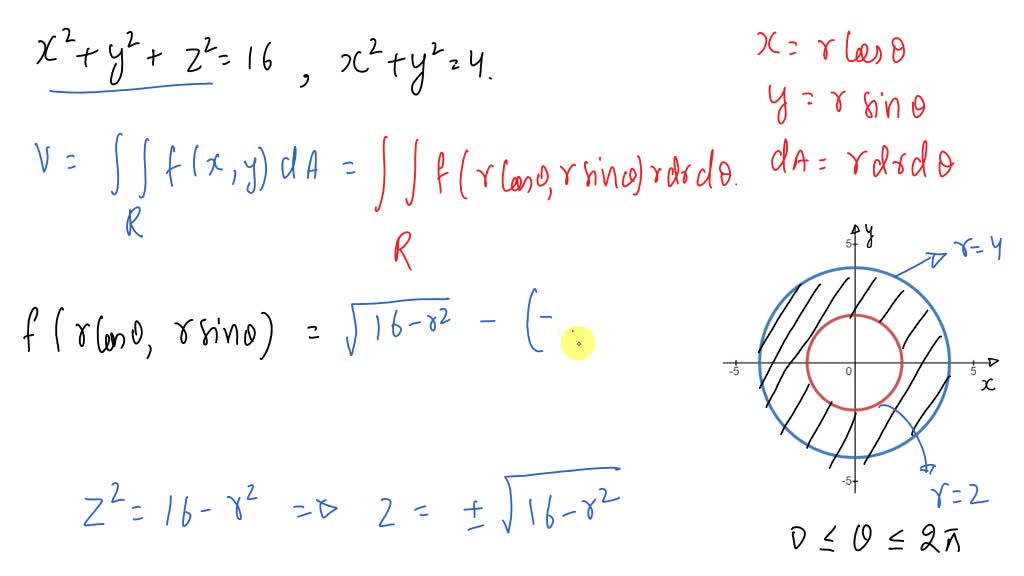 x² + y² + z² = 16 , x² + y² = 4.
x = r cos θ
y = r sin θ
dA = r dr dθ
V = ∫∫ f(x, y) dA = ∫∫ f(r cosθ, r sinθ) r dr dθ.
R R
f(r cosθ, r sinθ) = √(16 - r²) - (-
y
5
r = 4
-5 0 5
x
-5
r = 2
z² = 16 - r² ⇒ z = ± √(16 - r²)
0 ≤ θ ≤ 2π